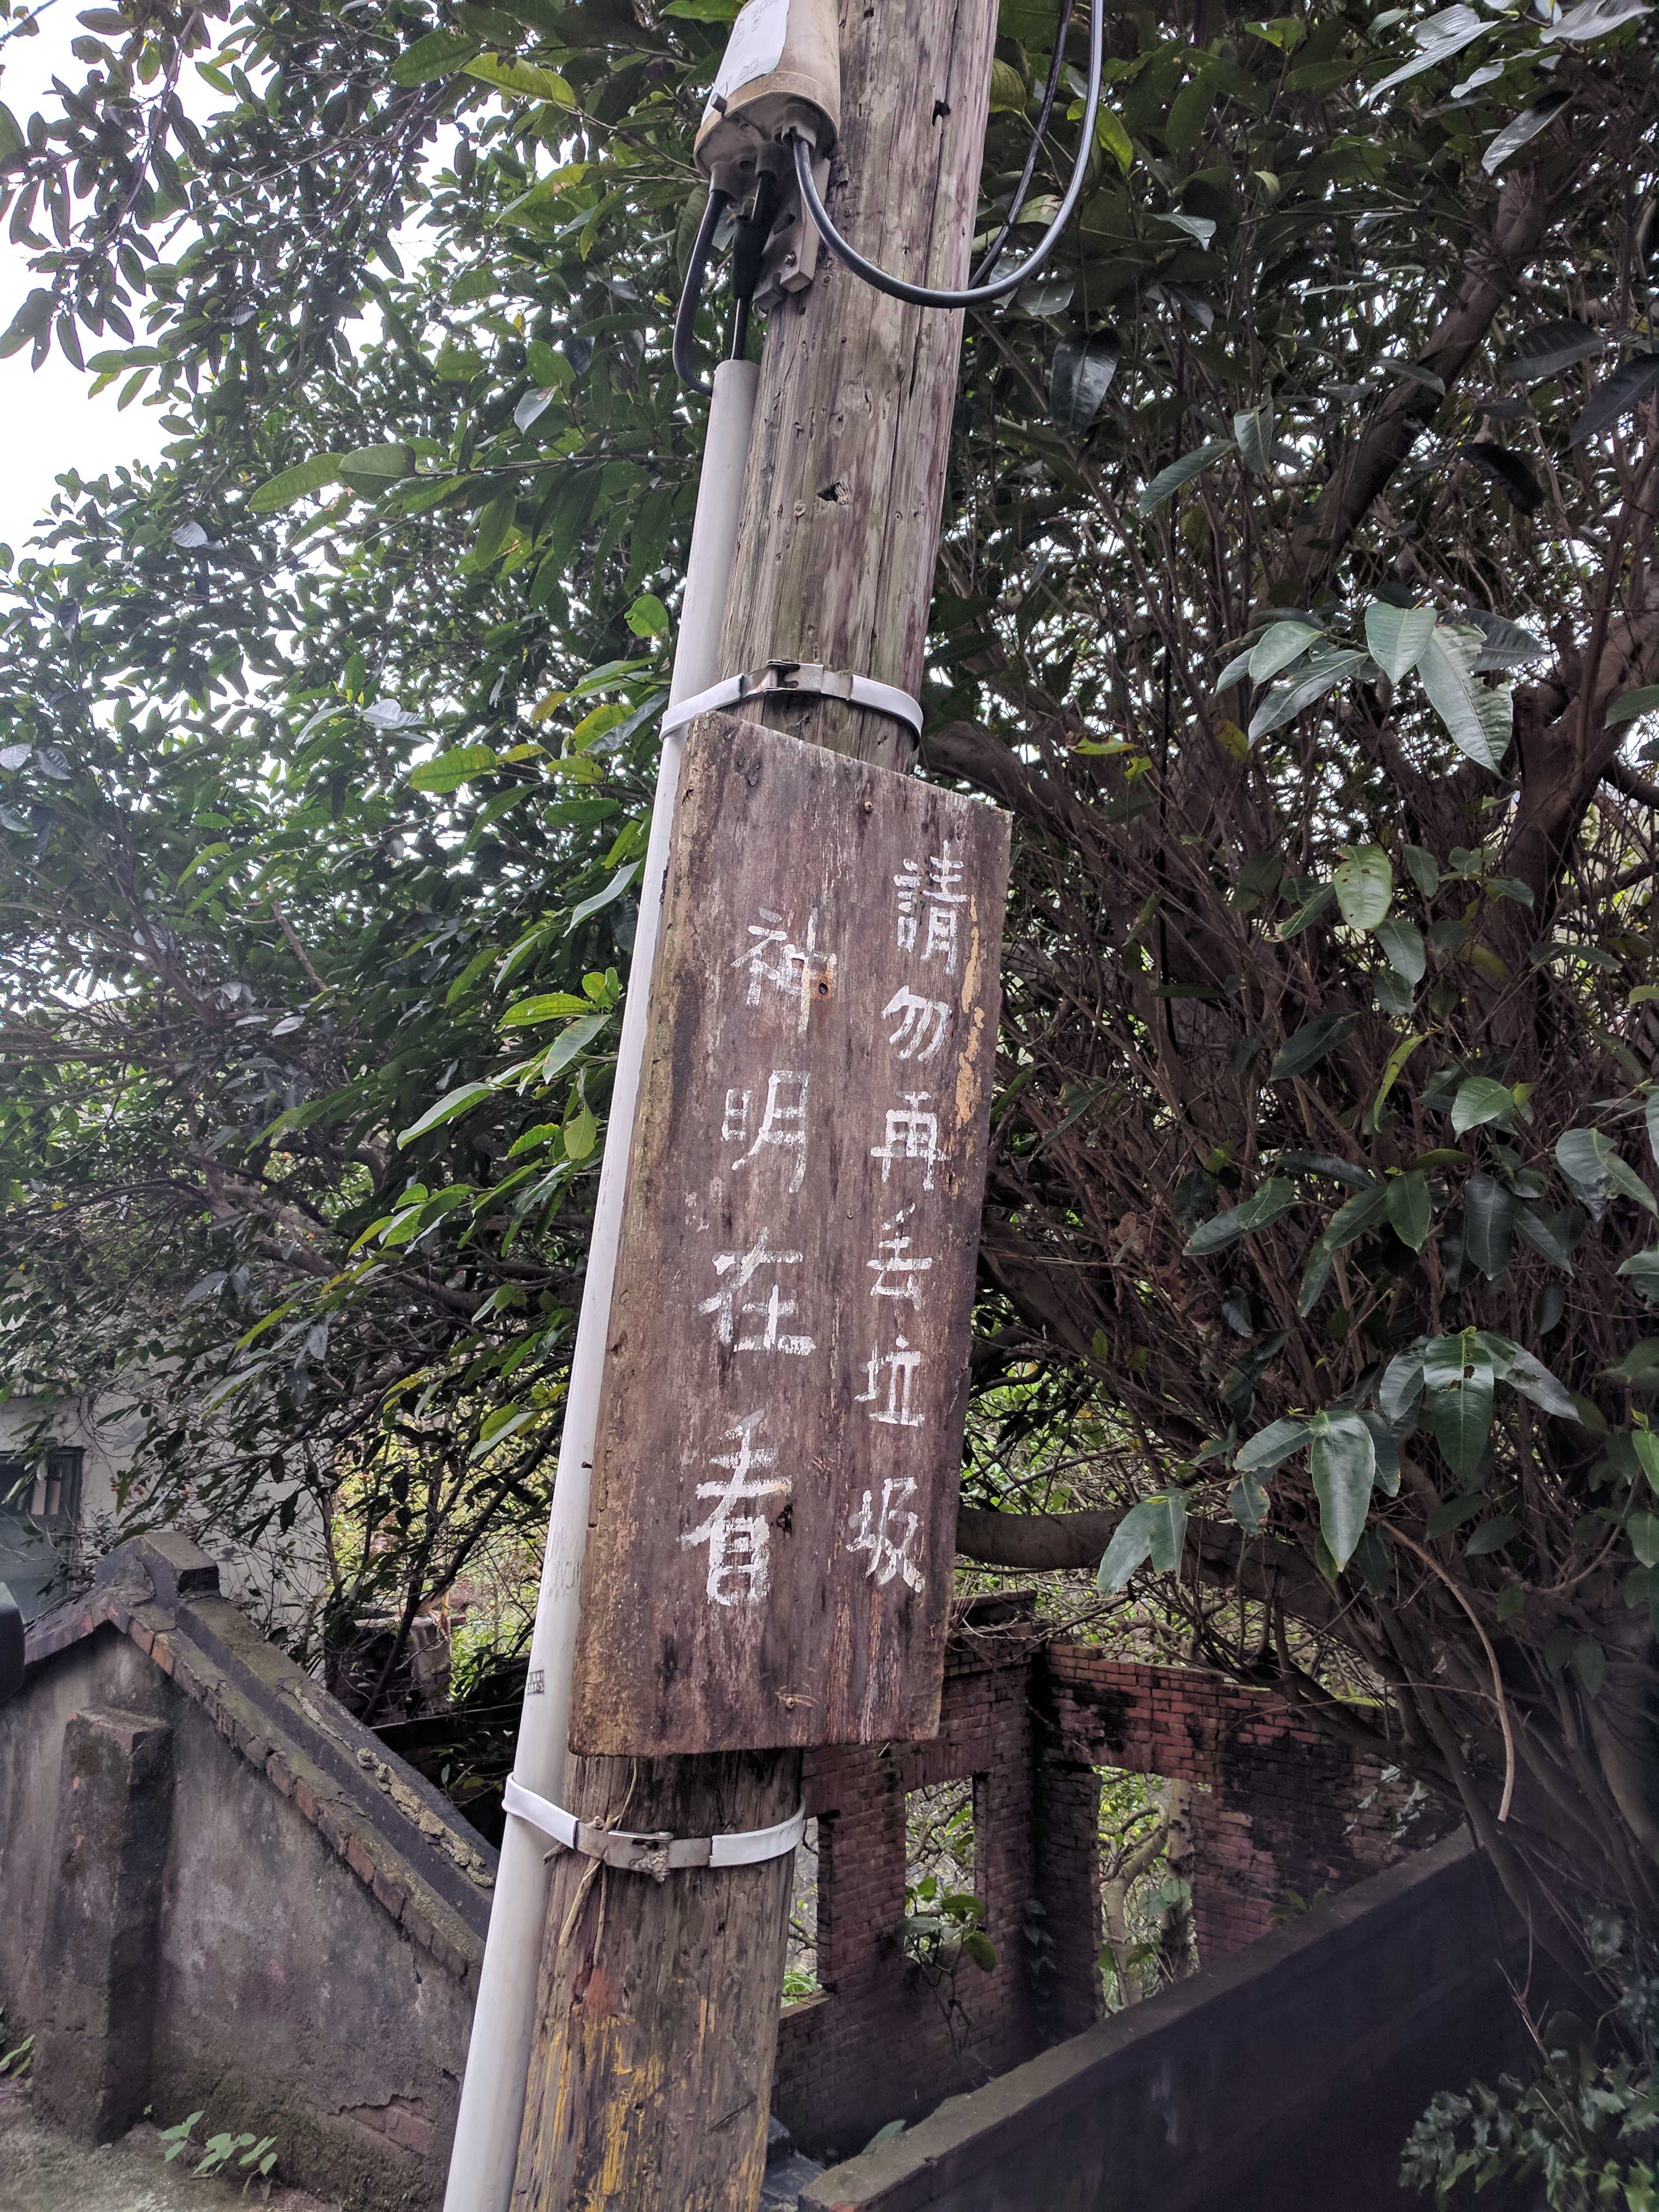 請勿再丟垃圾
神明在看